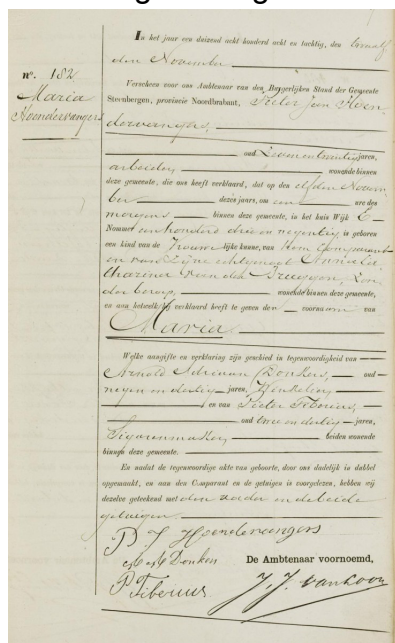 In het jaar een duizend acht honderd acht en tachtig, den twaalf
den November
nº. 182
Maria
Hoendervangers
Verscheen voor ons Ambtenaar van den Burgerlijken Stand der Gemeente
Steenbergen, provincie Noordbrabant, Pieter Jan Hoen
dervangers,
oud zeven en twintig jaren,
arbeider, wonende binnen
deze gemeente, die ons heeft verklaard, dat op den elfden Novem
ber dezes jaars, om een ure des
morgens binnen deze gemeente, in het huis Wijk E
Nommer een honderd drie en negentig is geboren
een kind van de vrouwelijke kunne, van hem Comparant
en van zijne echtgenoot Anna Ca
tharina van der Bruggen, zon
der beroep, wonende binnen deze gemeente,
en aan hetwelk hij verklaard heeft te geven den voornaam van
Maria.
Welke aangifte en verklaring zijn geschied in tegenwoordigheid van
Arnold Adriaan Donkers, oud
negen en dertig jaren, Winkelier,
en van Pieter Tiborius,
oud twee en dertig jaren,
Sigarenmaker, beiden wonende
binnen deze gemeente.
En nadat de tegenwoordige akte van geboorte, door ons dadelijk in dubbel
opgemaakt, en aan den Comparant en de getuigen is voorgelezen, hebben wij
dezelve geteekend met den vader en de beide
getuigen.
P J Hoendervangers
A A Donkers
De Ambtenaar voornoemd,
P Tiborius
J. J. van Loon